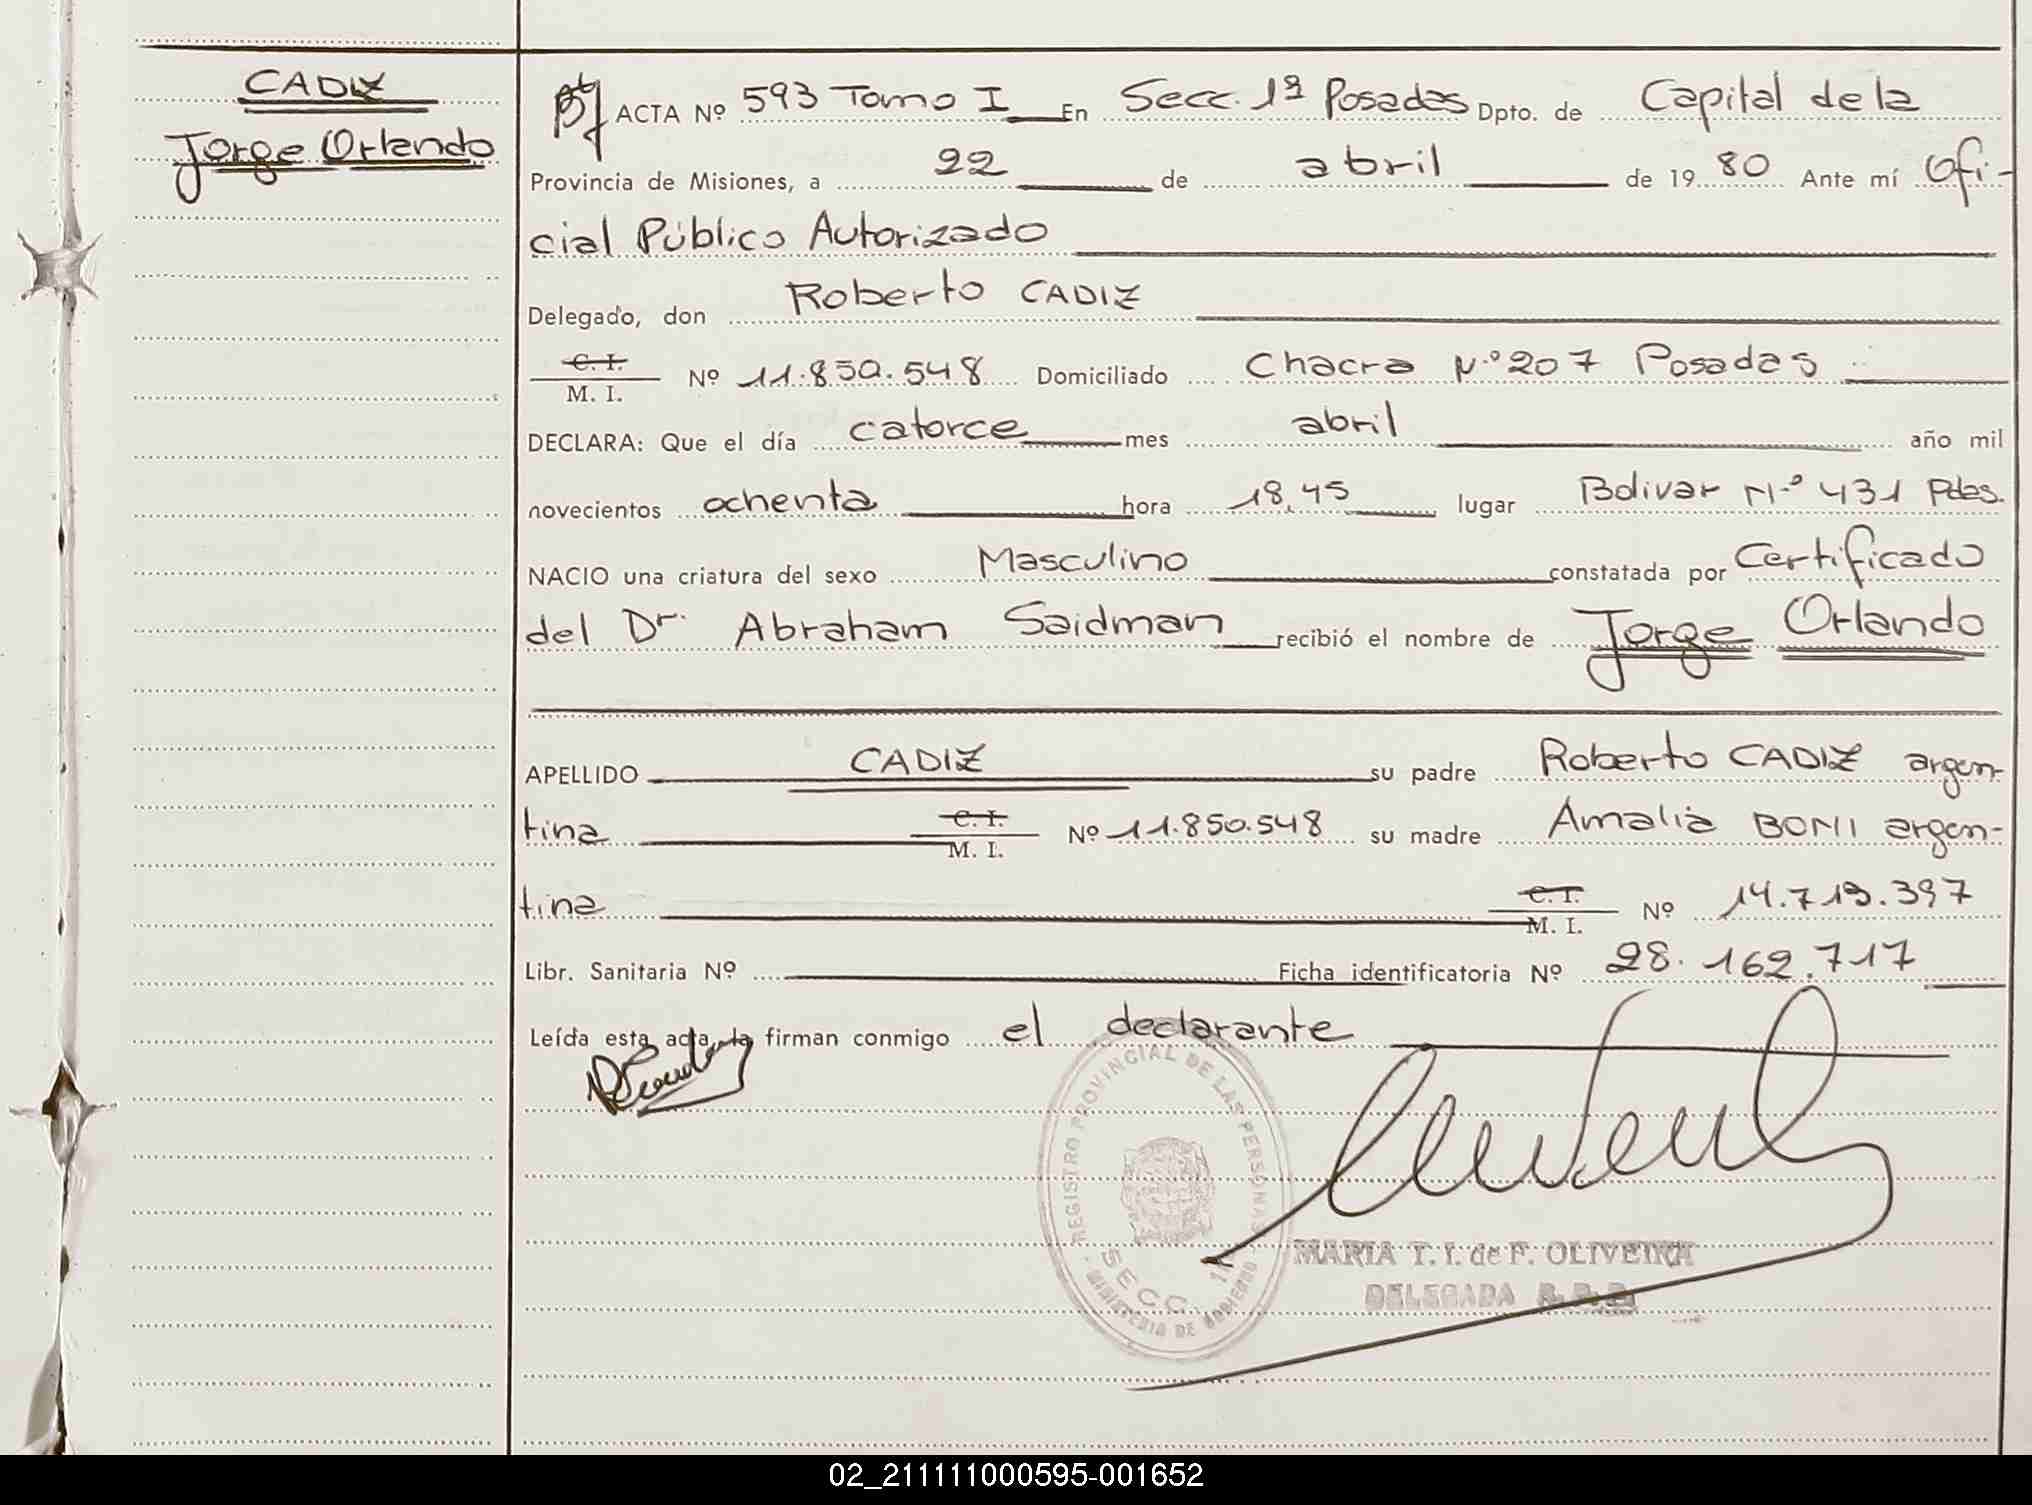 CADIZ
Jorge Orlando
ACTA Nº 593 Tomo I En Secc. 1ª Posadas Dpto. de Capital de la
Provincia de Misiones, a 22 de abril de 1980 Ante mí Ofi-
cial Público Autorizado
Delegado, don Roberto CADIZ
C. I.
M. I. Nº 11.850.548 Domiciliado Chacra N.º 207 Posadas
DECLARA: Que el día catorce mes abril año mil
novecientos ochenta hora 18,45 lugar Bolivar N.º 431 Pdas.
NACIO una criatura del sexo Masculino constatada por Certificado
del Dr. Abraham Saidman recibió el nombre de Jorge Orlando
APELLIDO CADIZ su padre Roberto CADIZ argen-
tina C. I.
M. I. Nº 11.850.548 su madre Amalia BONI argen-
tina C. I.
M. I. Nº 14.713.397
Libr. Sanitaria Nº Ficha identificatoria Nº 28.162.717
Leída esta acta la firman conmigo el declarante
REGISTRO PROVINCIAL DE LAS PERSONAS
SECC. 1ª
MINISTERIO DE GOBIERNO
MARIA T. I. de F. OLIVEIRA
DELEGADA
02_211111000595-001652